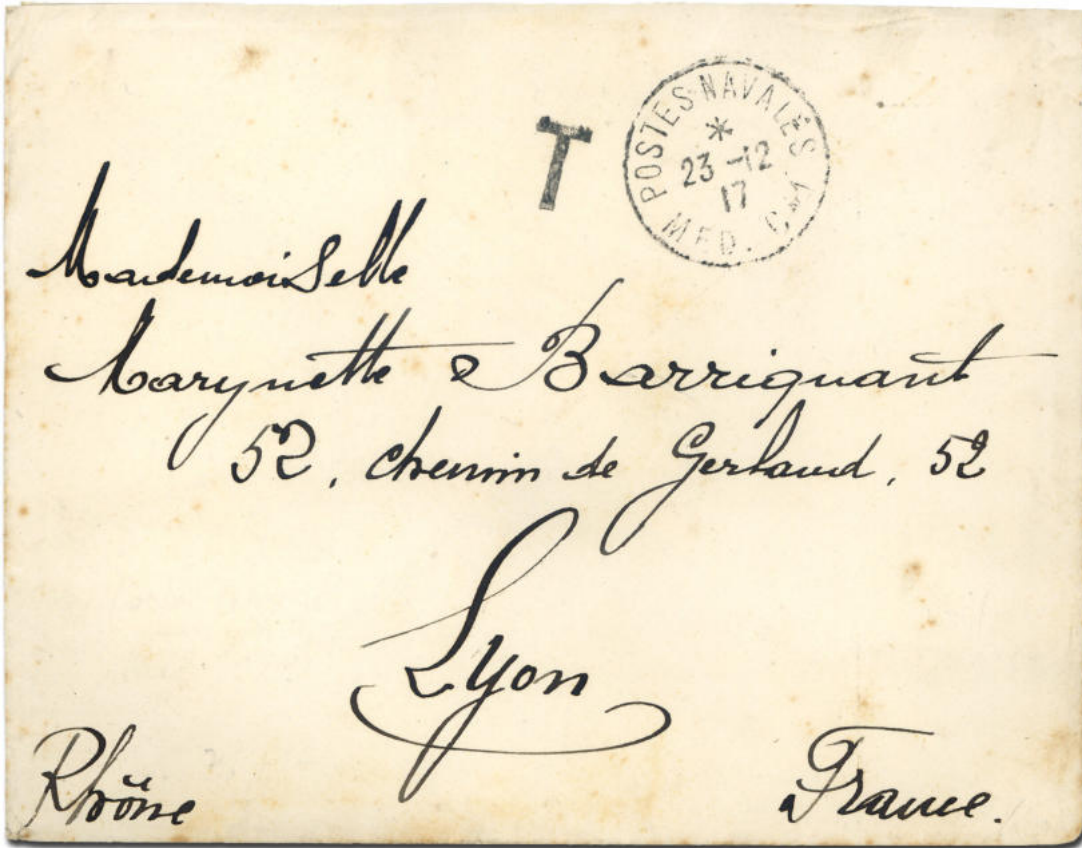 T
POSTES NAVALES
*
23 -12
17
MED. C
Mademoiselle
Marynette Barriquant
52, chemin de Gerland, 52
Lyon
Rhône
France.